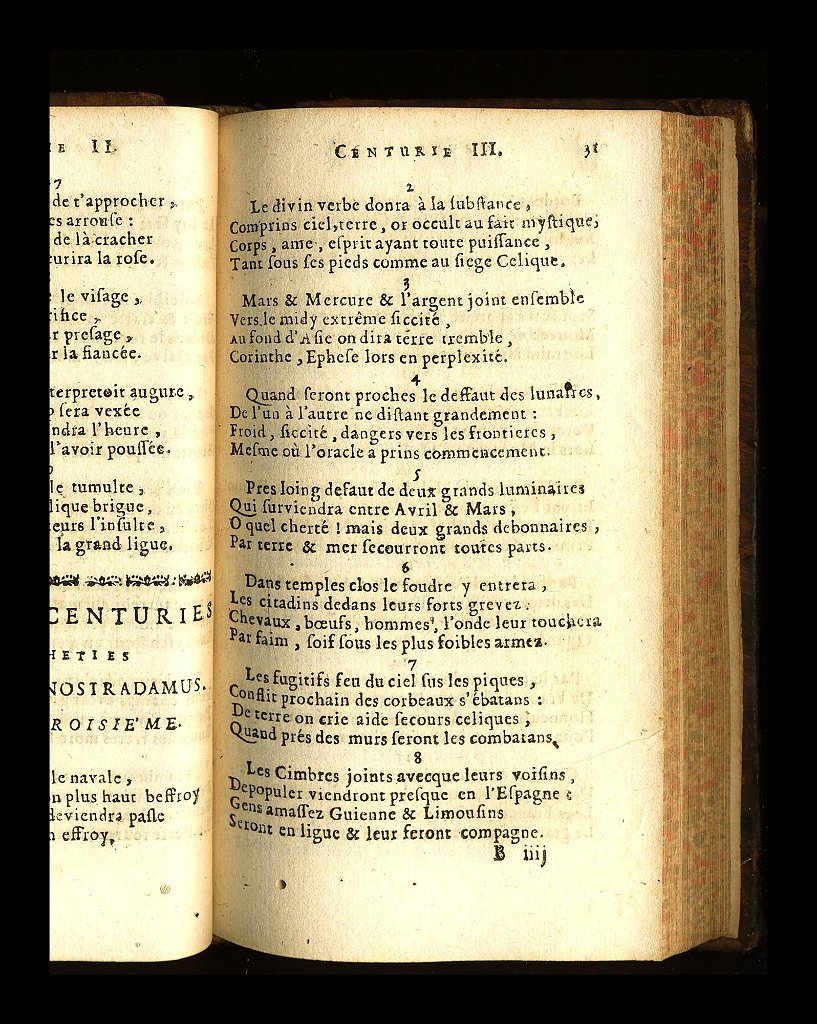 IE II.
7
de t'approcher,
es arrouse :
de là cracher
urira la rose.
le visage,
rifice,
r presage,
r la fiancée.
terpretoit augure,
sera vexée
ndra l'heure,
l'avoir poussée.
le tumulte,
lique brigue,
teurs l'insulte,
la grand ligue.
CENTURIES
HETIES
NOSTRADAMUS.
ROISIE'ME.
le navale,
n plus haut beffroy
deviendra pasle
n effroy,
CENTURIE III. 31
2
Le divin verbe donra à la ſubſtance,
Comprins ciel, terre, or occult au fait myſtique,
Corps, ame, eſprit ayant toute puiſſance,
Tant ſous ſes pieds comme au ſiege Celique.
3
Mars & Mercure & l'argent joint enſemble
Vers le midy extrême ſiccité,
Au fond d'Aſie on dira terre tremble,
Corinthe, Epheſe lors en perplexité.
4
Quand ſeront proches le deffaut des lunaires,
De l'un à l'autre ne diſtant grandement :
Froid, ſiccité, dangers vers les frontieres,
Meſme où l'oracle a prins commencement.
5
Pres loing defaut de deux grands luminaires
Qui ſurviendra entre Avril & Mars,
O quel cherté ! mais deux grands debonnaires,
Par terre & mer ſecourront toutes parts.
6
Dans temples clos le foudre y entrera,
Les citadins dedans leurs forts grevez :
Chevaux, bœufs, hommes, l'onde leur touchera
Par faim, ſoif ſous les plus foibles armez.
7
Les fugitifs feu du ciel ſus les piques,
Conflit prochain des corbeaux s'ébatans :
De terre on crie aide ſecours celiques,
Quand prés des murs ſeront les combatans.
8
Les Cimbres joints avecque leurs voiſins,
Depopuler viendront preſque en l'Eſpagne :
Gens amaſſez Guienne & Limouſins
Seront en ligue & leur feront compagne.
B iiij